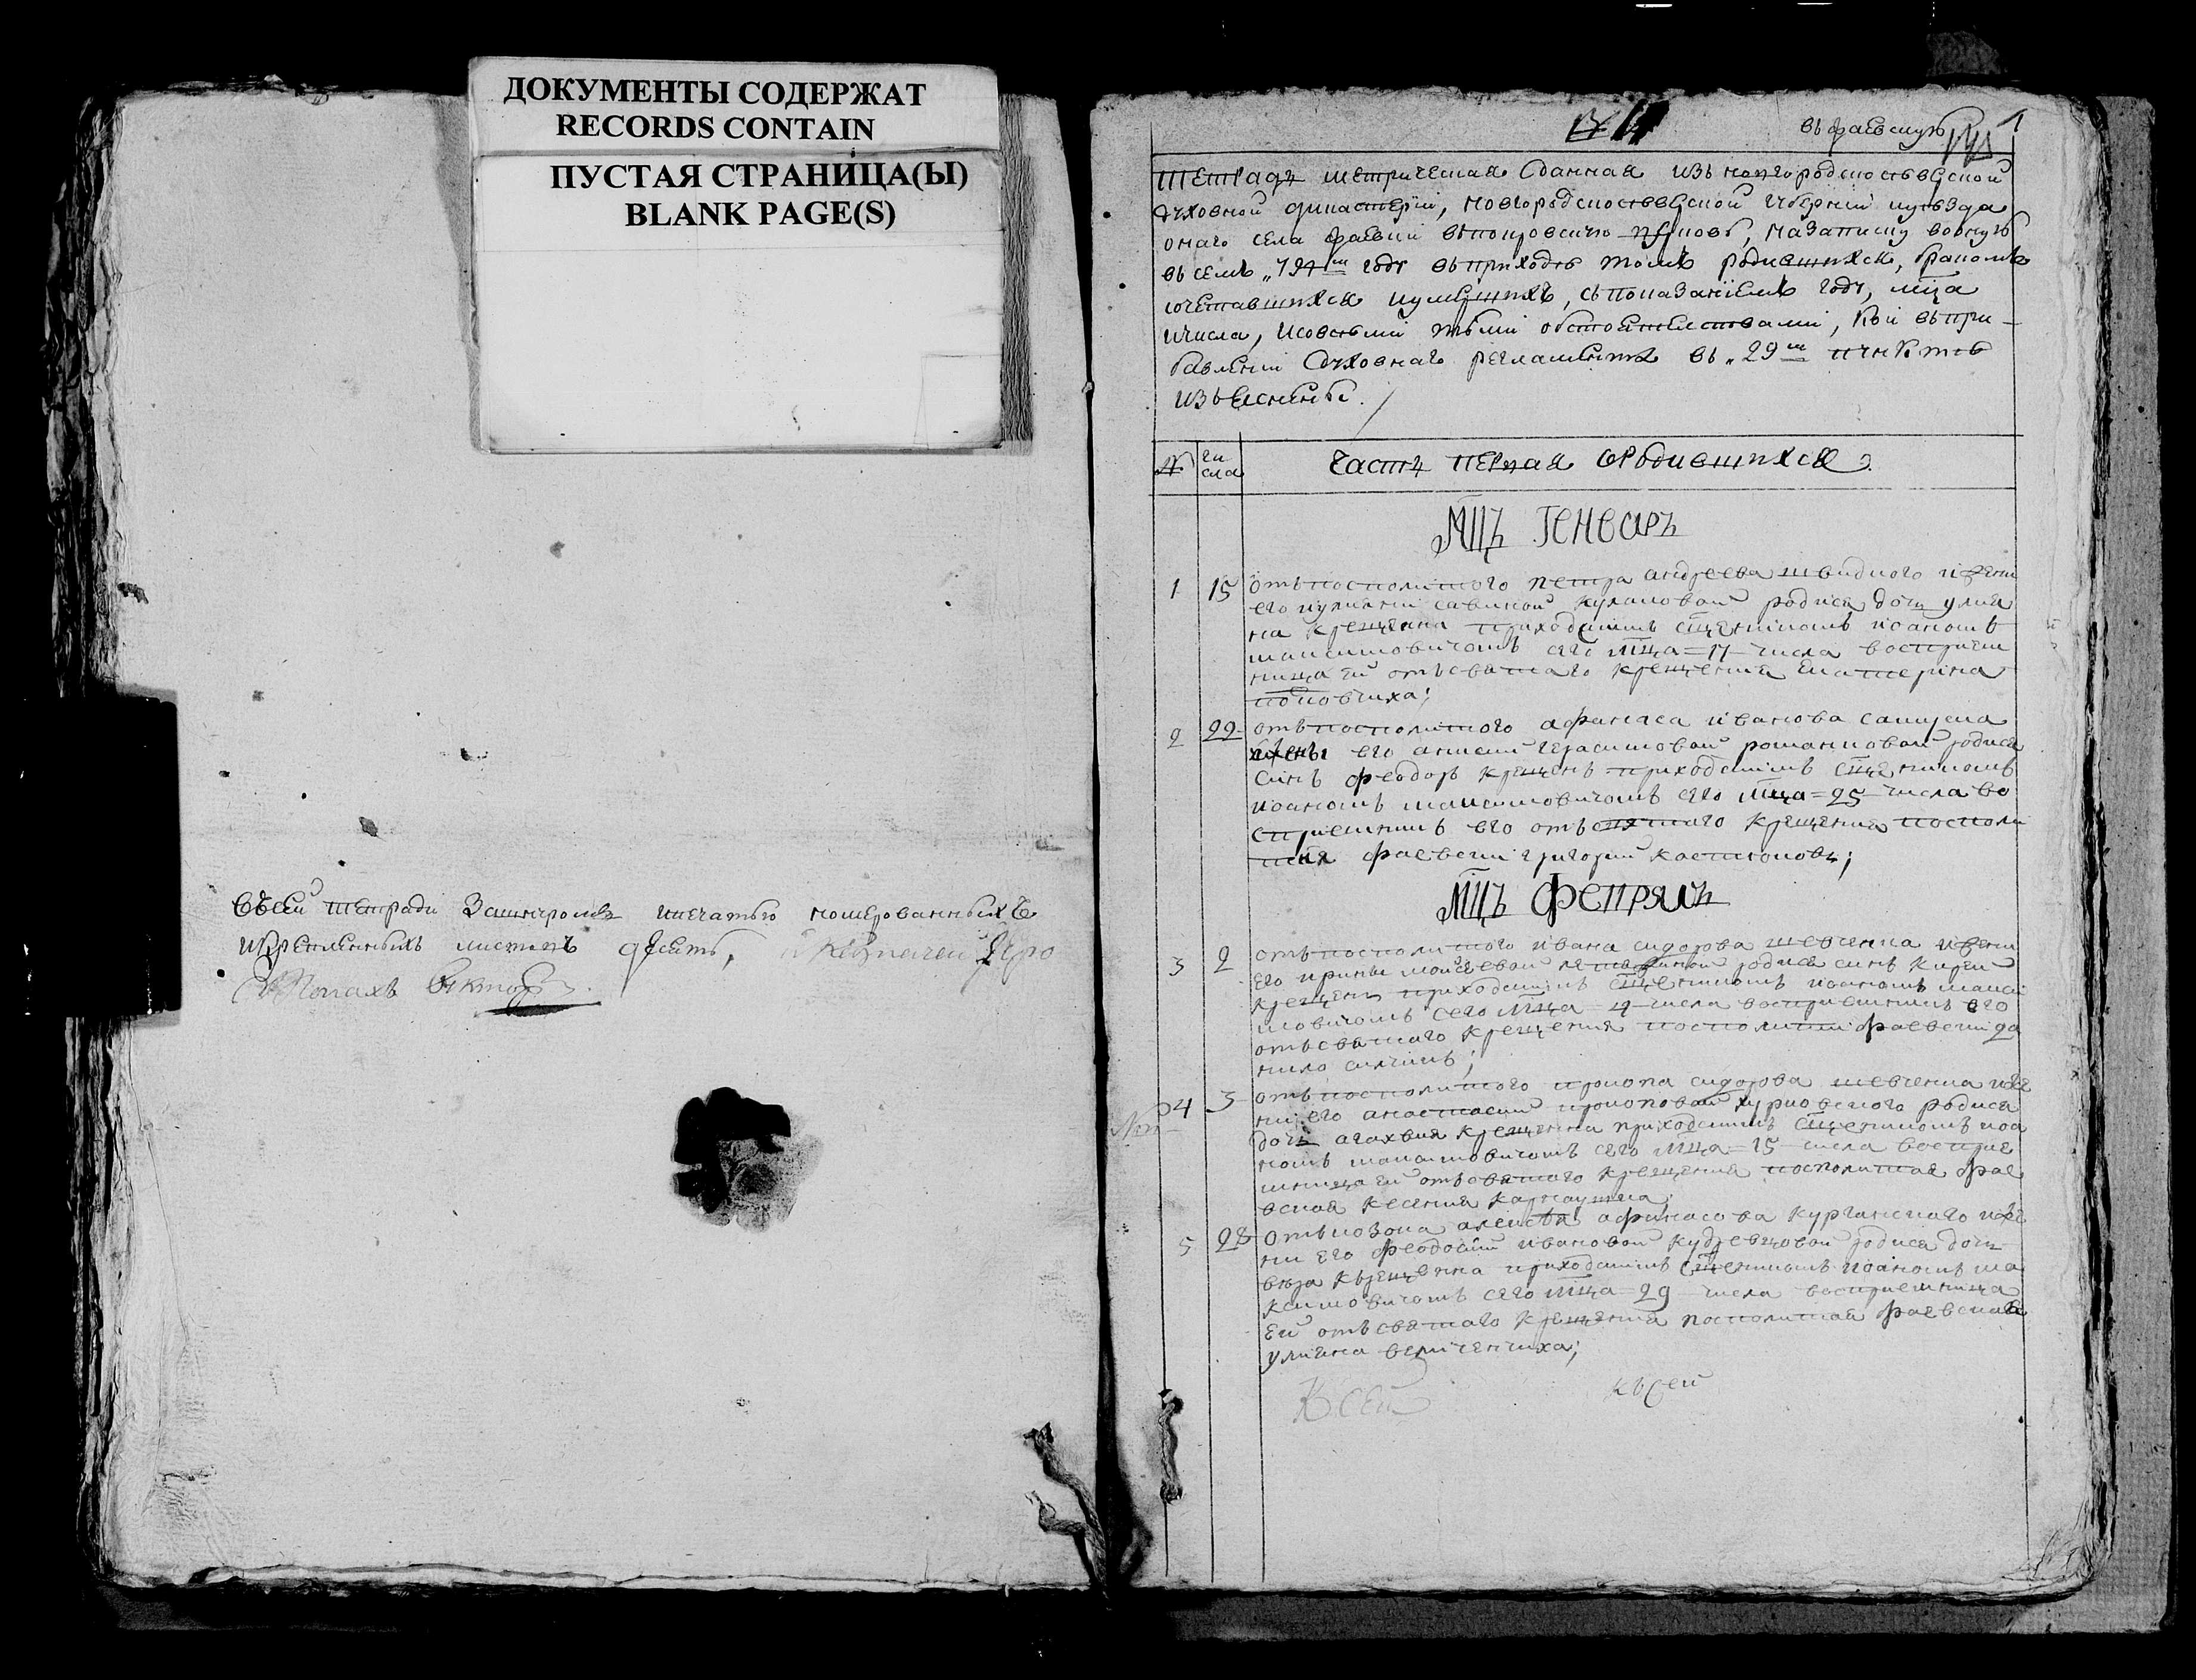 ДОКУМЕНТЫ СОДЕРЖАТ
RECORDS CONTAIN
ПУСТАЯ СТРАНИЦА(Ы)
BLANK PAGE(S)
въ сей тетради зашнуромъ ипечатью номерованныхъ
искрепленныхъ листовъ десять,
Монахъ Викторъ.
въ фаевскую 1
тетрадь метрическая данная изъ новгородскосеверской
духовной дикастеріи, новгородскосеверской губерніи иуезда
онаго села фаевки впокровскую церковь, назаписку вонную
въ семъ „794м году въприходе томъ родившихся, бракомъ
сочетавшихся иумершихъ, съпоказаніемъ году, мца
ичисла, исовсеми теми обстоятелствами, кои въпри-
бавленіи духовнаго регламента въ „29м пункте
изъяснены.
№ чи
сла
часть первая ородившихся
мцъ генваръ
1 15 отъ посполитого петра андреева швидкого ижени
его иулянии савиной кулаковой родися дочь улия
на крещена приходскимъ сщенникомъ иоаномъ
максимовичомъ сего мца = 17 числа восприем
ница ей отъ святаго крещения екатерина
поповчиха;
2 22 отъ посполитого афанаса иванова
жены его анисии герасимовой романковой родися
синъ феодоръ крещенъ приходскимъ сщенникомъ
иоаномъ максимовичомъ сего мца = 25 числа во
сприемникъ его отъ святаго крещения посполи
фаевски григорий
мцъ февралъ
3 2 отъ посполитого ивана сидорова шевченка ижени
его ирины моисеевой родися синъ
крещенъ приходскимъ сщенникомъ иоаномъ макси
мовичомъ сего мца 4 числа восприемникъ его
отъ святаго крещения посполитий фаевски да
нило
4 3 отъ посполитого прокопа сидорова шевченка иже
ни его анастасии родися
дочь агахвия крещенна приходскимъ сщенникомъ иоа
номъ максимовичомъ сего мца = 15 числа восприе
мница ей отъ святаго крещения посполитая фае
вская ксения
5 28 отъ козака алексея афанасова курганскаго иже
ни его феодосии ивановой кудревцовой родися дочь
вера крещенна приходскимъ сщенникомъ иоаномъ ма
ксимовичомъ сего мца = 29 числа восприемница
ей отъ святаго крещения посполитая фаевская
улияна величенчиха;
К сей
къ сей